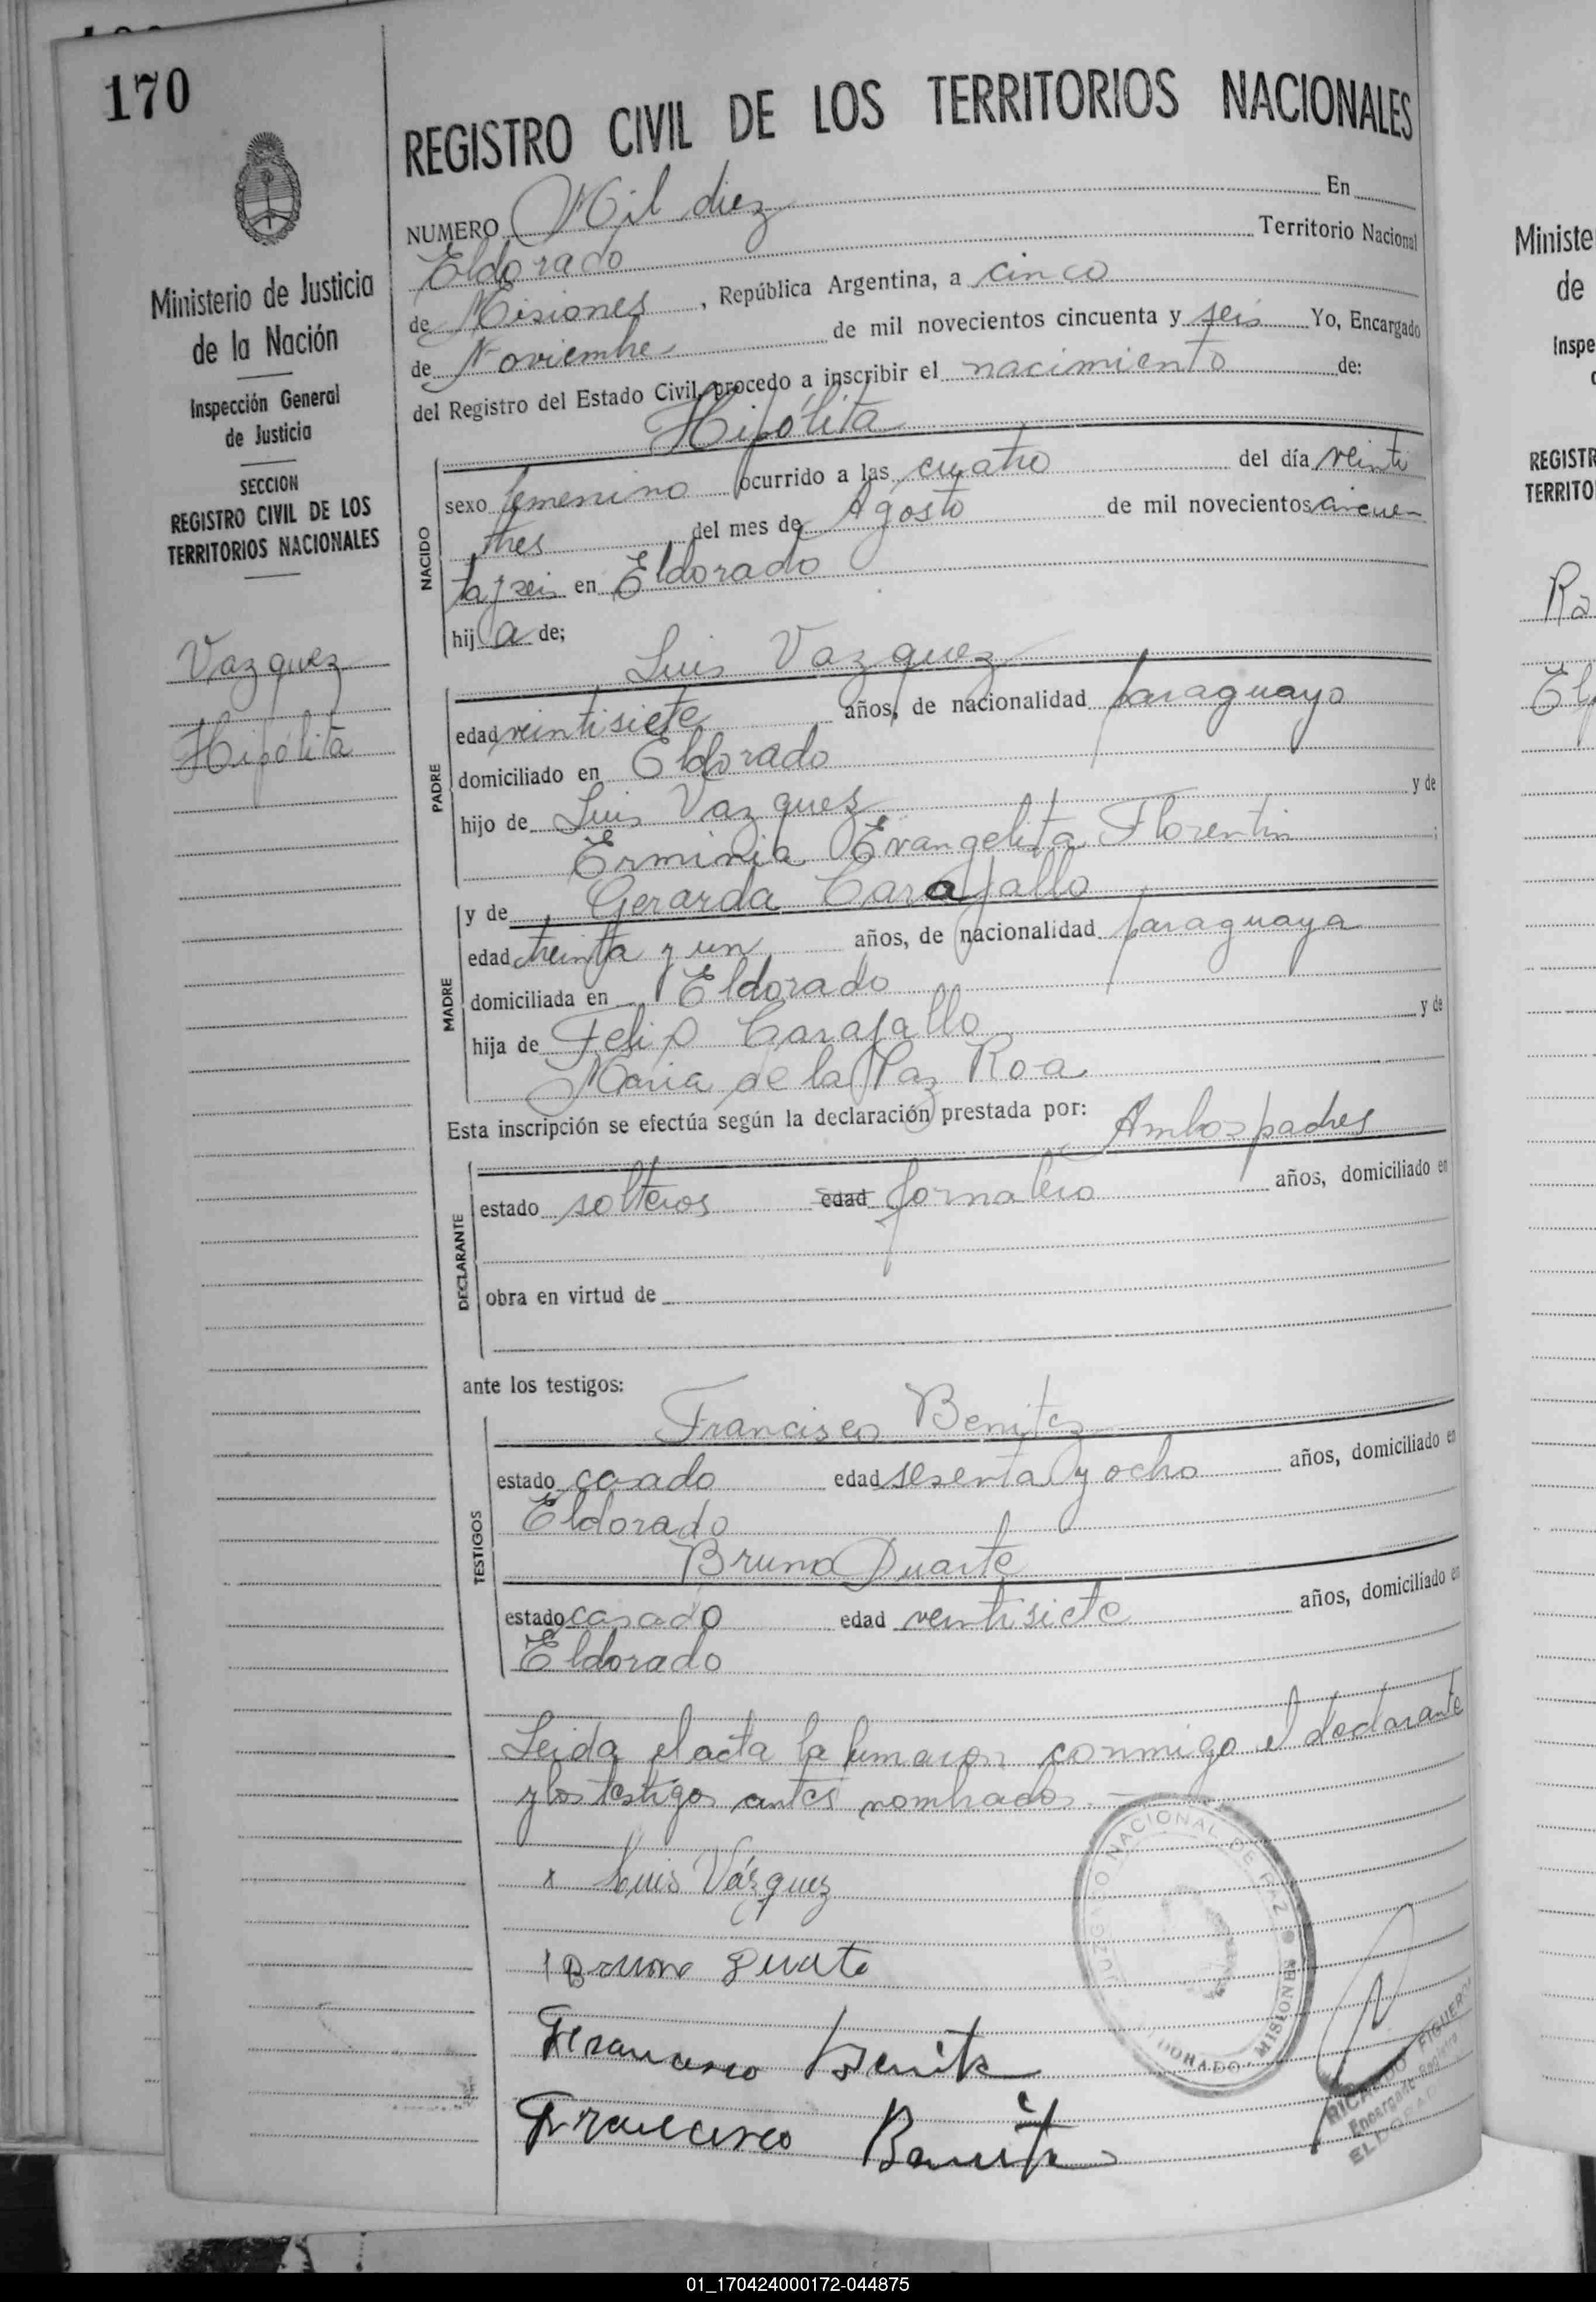 170
REGISTRO CIVIL DE LOS TERRITORIOS NACIONALES
Ministerio de Justicia
de la Nación
Inspección General
de Justicia
SECCION
REGISTRO CIVIL DE LOS
TERRITORIOS NACIONALES
Vazquez
Hipólita
NUMERO Mil diez En
Eldorado Territorio Nacional
de Misiones, República Argentina, a cinco
de Noviembre de mil novecientos cincuenta y seis Yo, Encargado
del Registro del Estado Civil, procedo a inscribir el nacimiento de:
Hipólita
NACIDO
sexo femenino ocurrido a las cuatro del día veinti
tres del mes de Agosto de mil novecientos cincuen
ta y seis en Eldorado
hij a de;
Luis Vazquez
PADRE
edad veintisiete años, de nacionalidad paraguayo
domiciliado en Eldorado
hijo de Luis Vazquez y de
Erminia Evangelista Florentin
MADRE
y de Gerarda Carajallo
edad treinta y un años, de nacionalidad paraguaya
domiciliada en Eldorado
hija de Felip Carajallo y de
Maria de la Paz Roa
Esta inscripción se efectúa según la declaración prestada por: Ambos padres
DECLARANTE
estado solteros edad jornalero años, domiciliado en
obra en virtud de
ante los testigos:
Francisco Benitez
TESTIGOS
estado casado edad sesenta y ocho años, domiciliado en
Eldorado
Bruno Duarte
estado casado edad veintisiete años, domiciliado en
Eldorado
Leida el acta la firmaron conmigo el declarante
y los testigos antes nombrados.
x Luis Vázquez
JUZGADO NACIONAL DE PAZ
DORADO MISIONES
Francisco Benitz
Francisco Benitz
RICARDO FIGUERO
Encargado Registro
ELDORAD
Ministe
de
Inspe
REGISTR
TERRITO
Ra
01_170424000172-044875